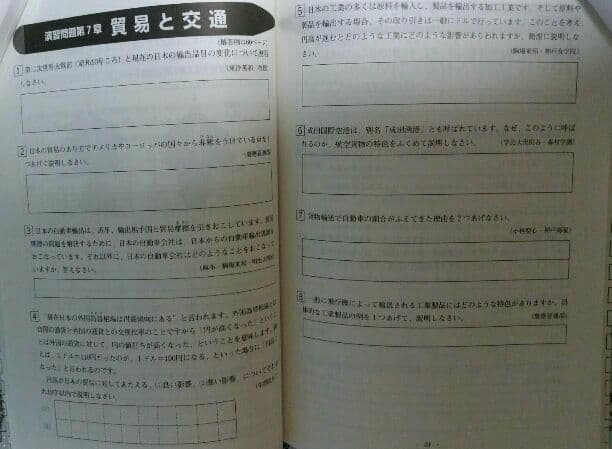 演習問題第7章 貿易と交通
(解答例は60ページ)
1 第二次世界大戦前(昭和10年ころ)と現在の日本の輸出品目の変化について説明
しなさい。
2 日本の貿易のあり方でアメリカやヨーロッパの国々から非難をうけている点を1
つあげて説明しなさい。
(慶應普通部)
3 日本の自動車輸出は、近年、輸出相手国と貿易摩擦を引きおこしています。貿易
摩擦の問題を解決するために、日本の自動車会社は、日本からの自動車輸出
おこなっています。それ以外に、日本の自動車会社はどのようなことをおこなって
いますか。答えなさい。
4 「現在日本の外国為替相場は円高傾向にある」と言われます。外国為替相場とは
自国の通貨と外国の通貨との交換比率のことですから「円が高くなった」というこ
とは外国の通貨に対して、円の値打ちが高くなった、ということを意味します。例
えば、1ドル=110円だったのが、1ドル=100円になる、といった場合に「円高に
なった」と言われるのです。
円高が日本の貿易に対してあたえる、(1)良い影響、(2)悪い影響、についてそれ
ぞれ10字以内で説明しなさい。
(1)
(2)
5 日本の工業の多くは原料を輸入し、製品を輸出する加工工業です。そして原料や
製品を輸出する場合、その取り引きは一般にドルで行っています。このことを考え、
円高が進むとどのような工業にどのような影響があらわれますか、簡潔に説明しな
さい。
(駒場東邦・神戸女学院)
6 成田国際空港は、別名「成田漁港」とも呼ばれています。なぜ、このように呼ば
れるのか、航空貨物の特色をふくめて説明しなさい。
7 貨物輸送で自動車の割合がふえてきた理由を2つあげなさい。
8 一般に飛行機によって輸送される工業製品にはどのような特色がありますか。具
体的な工業製品の例を1つあげて、説明しなさい。
(慶應普通部)